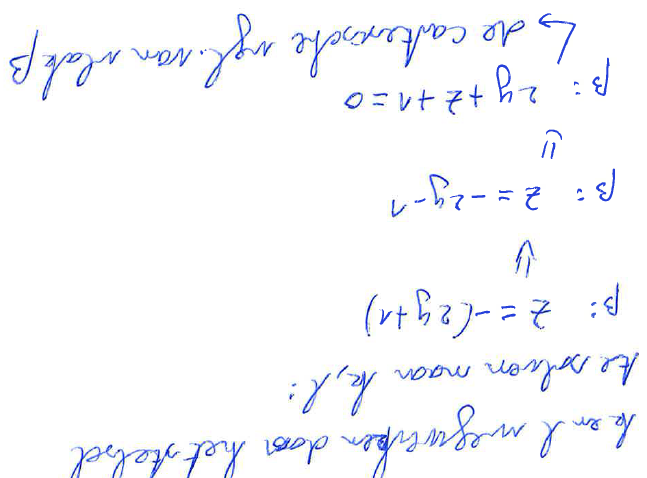 k en l wegwerken door het stelsel
te solven naar k, l:
β: z = -(2y+1)
⇓
β: z = -2y-1
⇓
β: 2y + z + 1 = 0
↳ de cartesische vgl. van vlak β